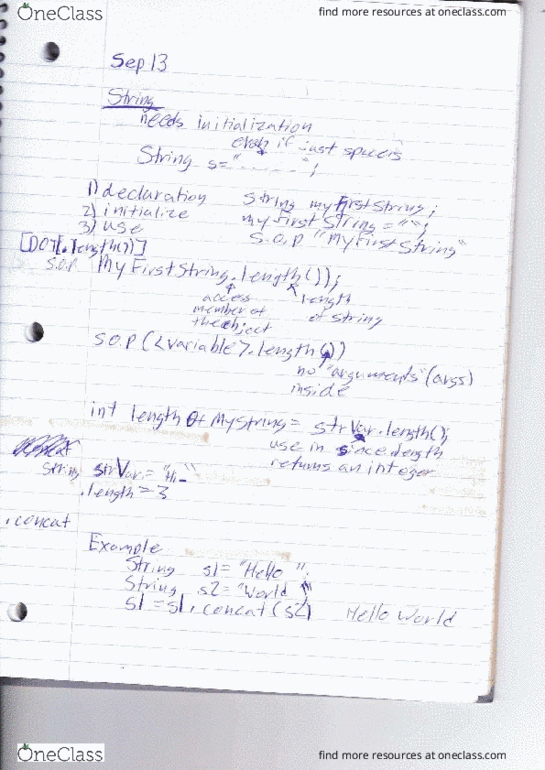 OneClass
find more resources at oneclass.com
Sep 13
String
needs initialization
even if just spaces
String s="........";
1) declaration String myFirstString;
2) initialize myFirstString = "";
3) use S.O.P "MyFirstString"
[DOT[.length()]]
S.O.P MyFirstString.length());
access member of the object
length of string
S.O.P(<variable>.length())
no "arguments" (args)
inside
int length Of MyString = strVar.length();
use in since length
returns an integer
String strVar = "
.length = 3
.concat
Example
String s1 = "Hello ";
String s2 = "World
s1 = s1.concat(s2) Hello World
OneClass
find more resources at oneclass.com